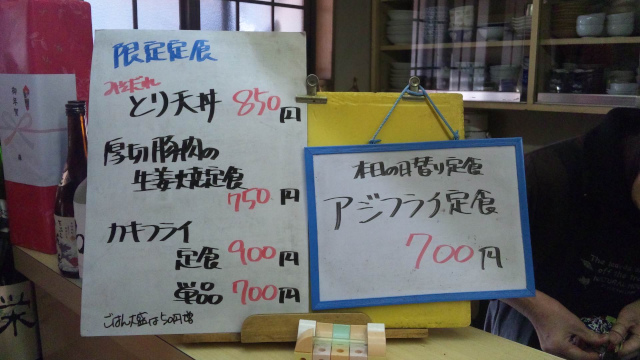 限定定食
みそだれ
とり天丼 850円
厚切豚肉の
生姜焼定食
750円
カキフライ
定食 900円
単品 700円
ごはん大盛は50円増
本日の日替り定食
アジフライ定食
700円